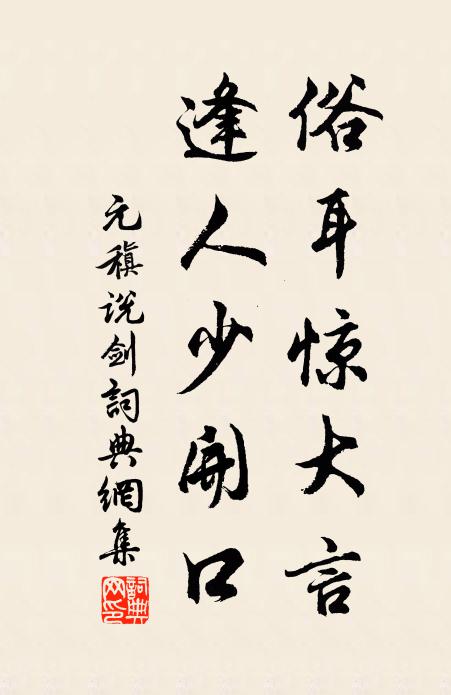 俗耳惊大言
逢人少開口
元稹说剑詞典網集
詞典網印